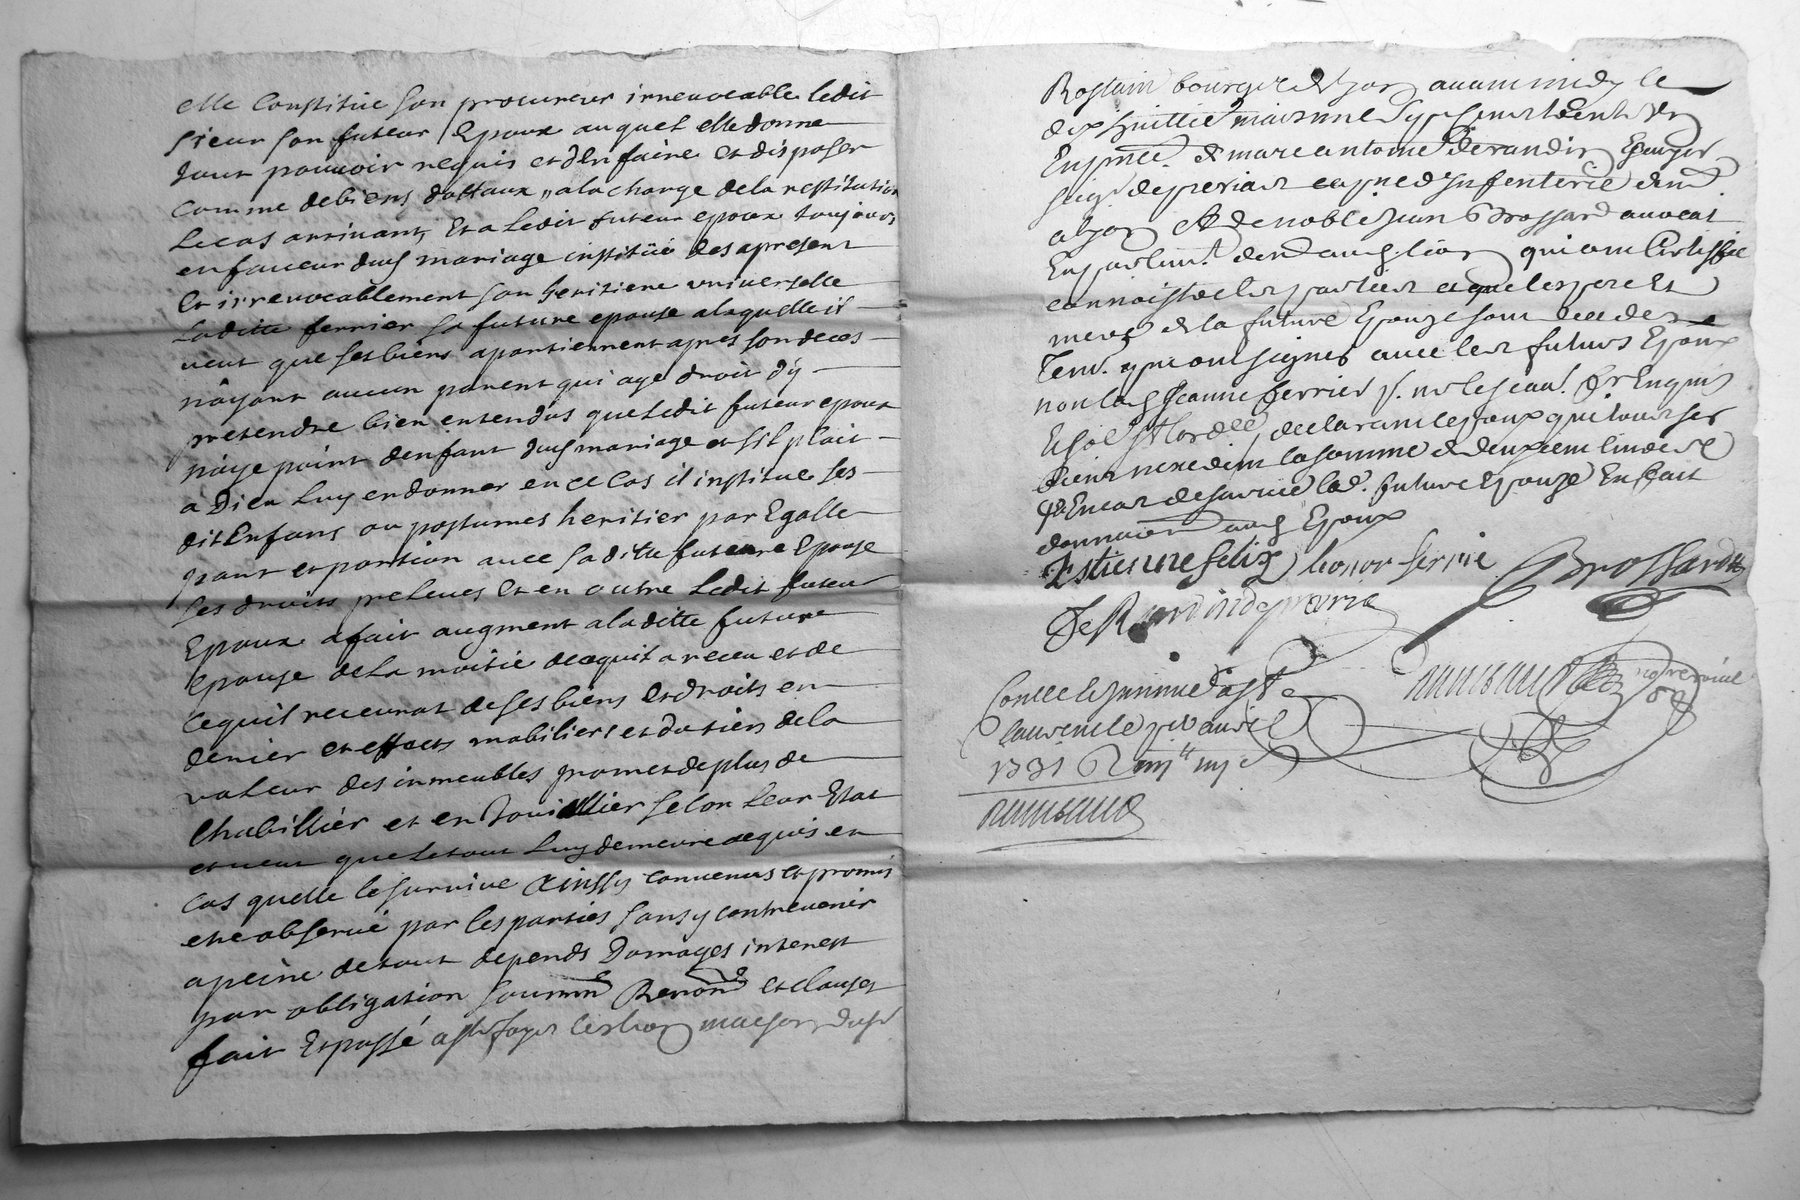 elle Constitüe son procureur irreuocable ledit
sieur son futeur Epoux auquel elle donne
tout pouuoir requis et d'en faire et disposer
comme de biens dottaux, a la charge de la restitution
le cas arriuant, Et a ledit futeur epoux toujours
en faueur dud mariage institüé des apresent
Et irreuocablement son heritiere vniuerselle
Laditte ferrier sa future epouse a laquelle il
ueut que ses biens apartiennent apres son deces
n'ayant aucun parent qui aye droit d'y
pretendre bien entendus que ledit futeur epoux
n'aye point denfant dud mariage et s'il plait
a Dieu luy en donner en ce Cas il institue ses
dit Enfans ou postumes heritier par Egalle
part et portion auec sa ditte future Epouse
ses droits preleues et en outre Ledit futeur
Epoux a fait augment a laditte future
epouse de La moitié de cequil a receu et de
cequil receurat de ses biens et droits en
denier et effects mobiliers et du tiers de la
valeur des inmeubles promet de plus de
l'habillier et en Jouiallier selon leur Etat
et ueut que le tout luy demeure aquis en
cas quelle le suruiue Ainssy conuenus et promis
etre obserué par les parties sans y contreuenir
a peine de tout depends Domages interest
par obligation soumn Renon et clauses
fait Et passé a ste foyes les lion maison du sr
Rostain bourgeois de Lyon auant midy le
dix huittie mars mil sept cent trente Un
En presce de marc antoine Derandin Ecuyer
seigr de periar capne d'infenterie demt
a lyon Et de noble jean Brossard auocat
En parlemt demt aud. lion qui ont Certiffié
connoistre les parties et que les pere Et
mere de la future Epouze sont decedes
Tem. qui ont signés auec les futurs Epoux
non lad. Jeanne ferrier p. ne le scau. de ce Enquis
declarant les Epoux que tous ses
biens nexedent la somme de deux cent liures
Et En cas de suruie lad. future Epouze En fait
donnaon aud Epoux
Estienne felix honor fernie Brossard
De Randin de periar
Controllé
laurent le auril
1731